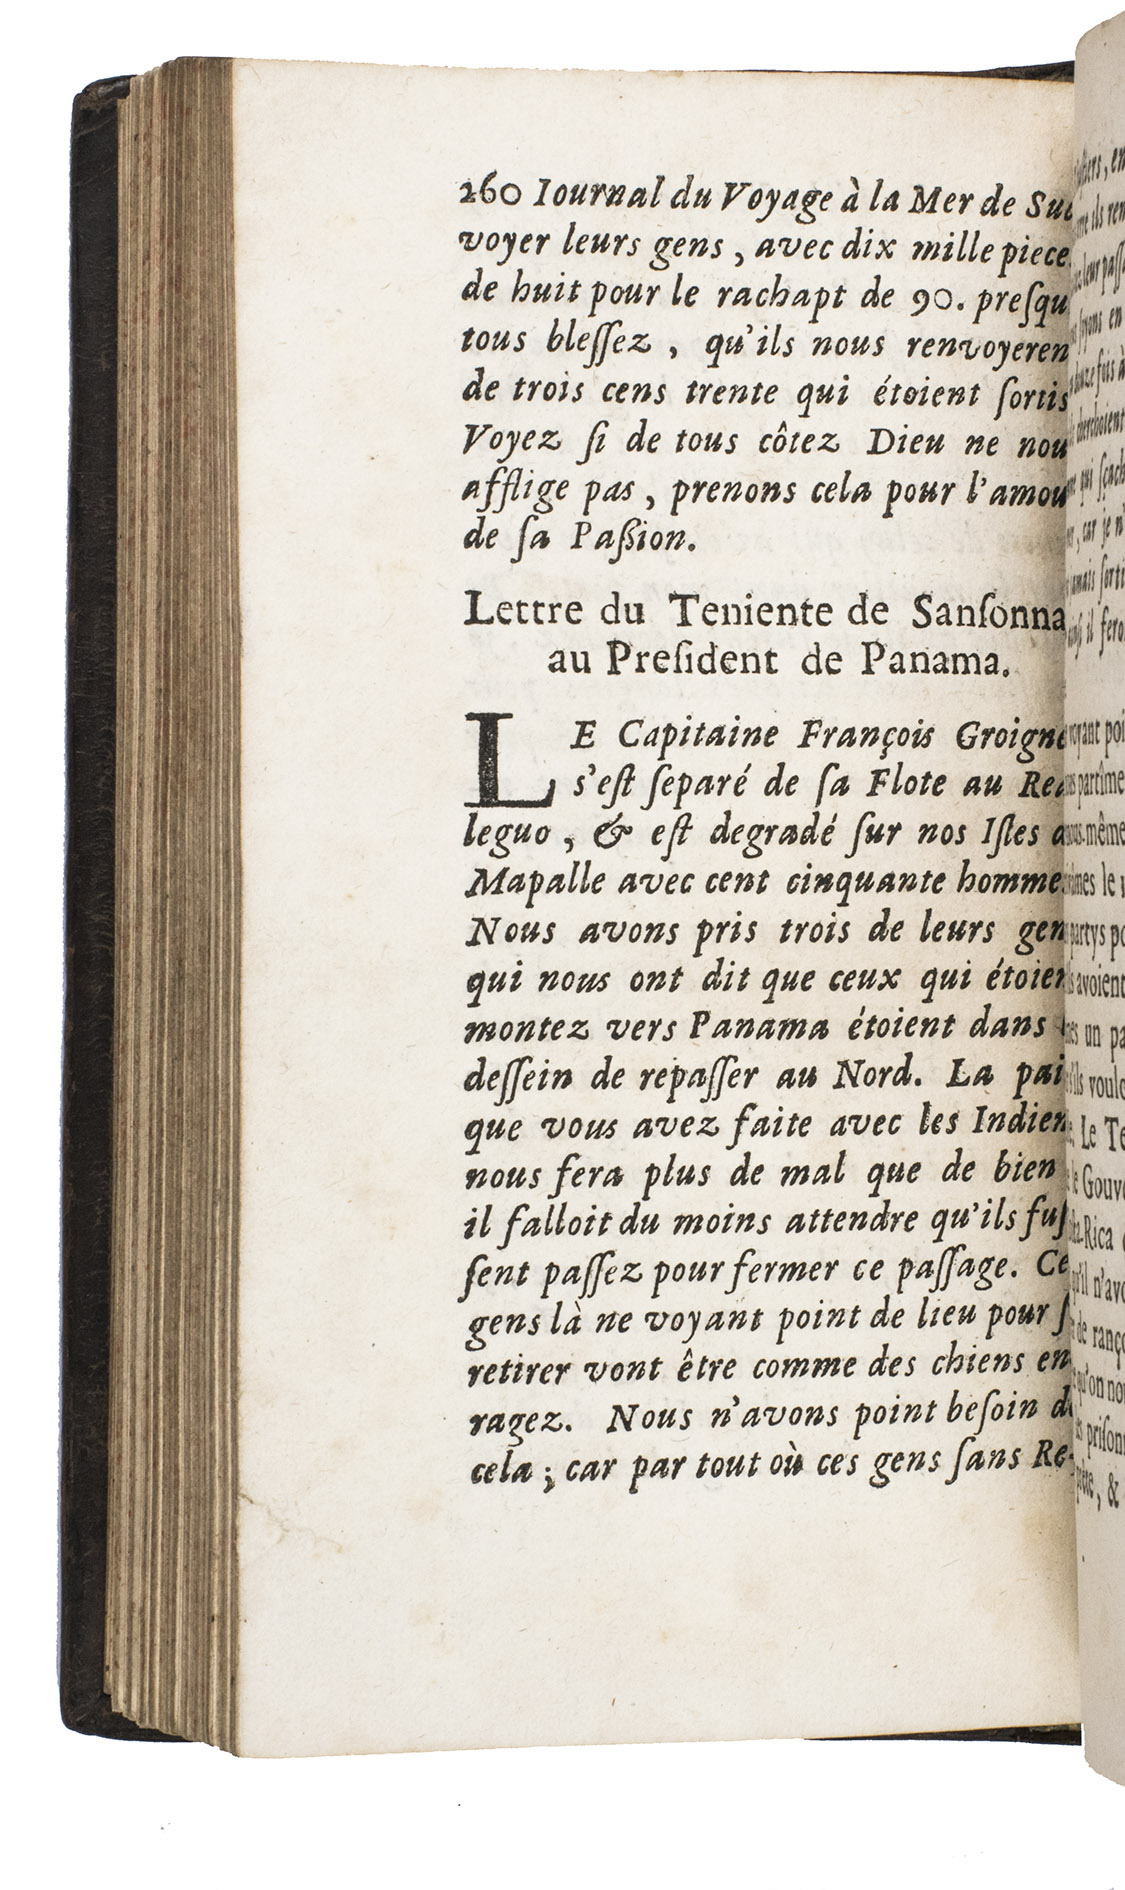 260 Iournal du Voyage à la Mer de
voyer leurs gens, avec dix mille piece
de huit pour le rachapt de 90. preſqu
tous bleſſez, qu'ils nous renvoyeren
de trois cens trente qui étoient ſortis
Voyez ſi de tous côtez Dieu ne nou
afflige pas, prenons cela pour l'amou
de ſa Paßion.
Lettre du Teniente de Sanſonna
au Preſident de Panama.
LE Capitaine François Groigne
s'eſt ſeparé de ſa Flote au Rea
leguo, & eſt degradé ſur nos Iſles
Mapalle avec cent cinquante homme
Nous avons pris trois de leurs gen
qui nous ont dit que ceux qui étoien
montez vers Panama étoient dans
deſſein de repaſſer au Nord. La pai
que vous avez faite avec les Indien
nous fera plus de mal que de bien
il falloit du moins attendre qu'ils fuſ
ſent paſſez pour fermer ce paſſage. Ce
gens là ne voyant point de lieu pour ſ
retirer vont être comme des chiens en
ragez. Nous n'avons point beſoin de
cela; car par tout où ces gens ſans Re-
car je n'
voyant poi
partîme
-même
mes le
partys po
avoient
un pa
ils voulo
Le Te
Gouve
-Rica
qu'il n'avo
de ranço
qu'on no
priſon
, &